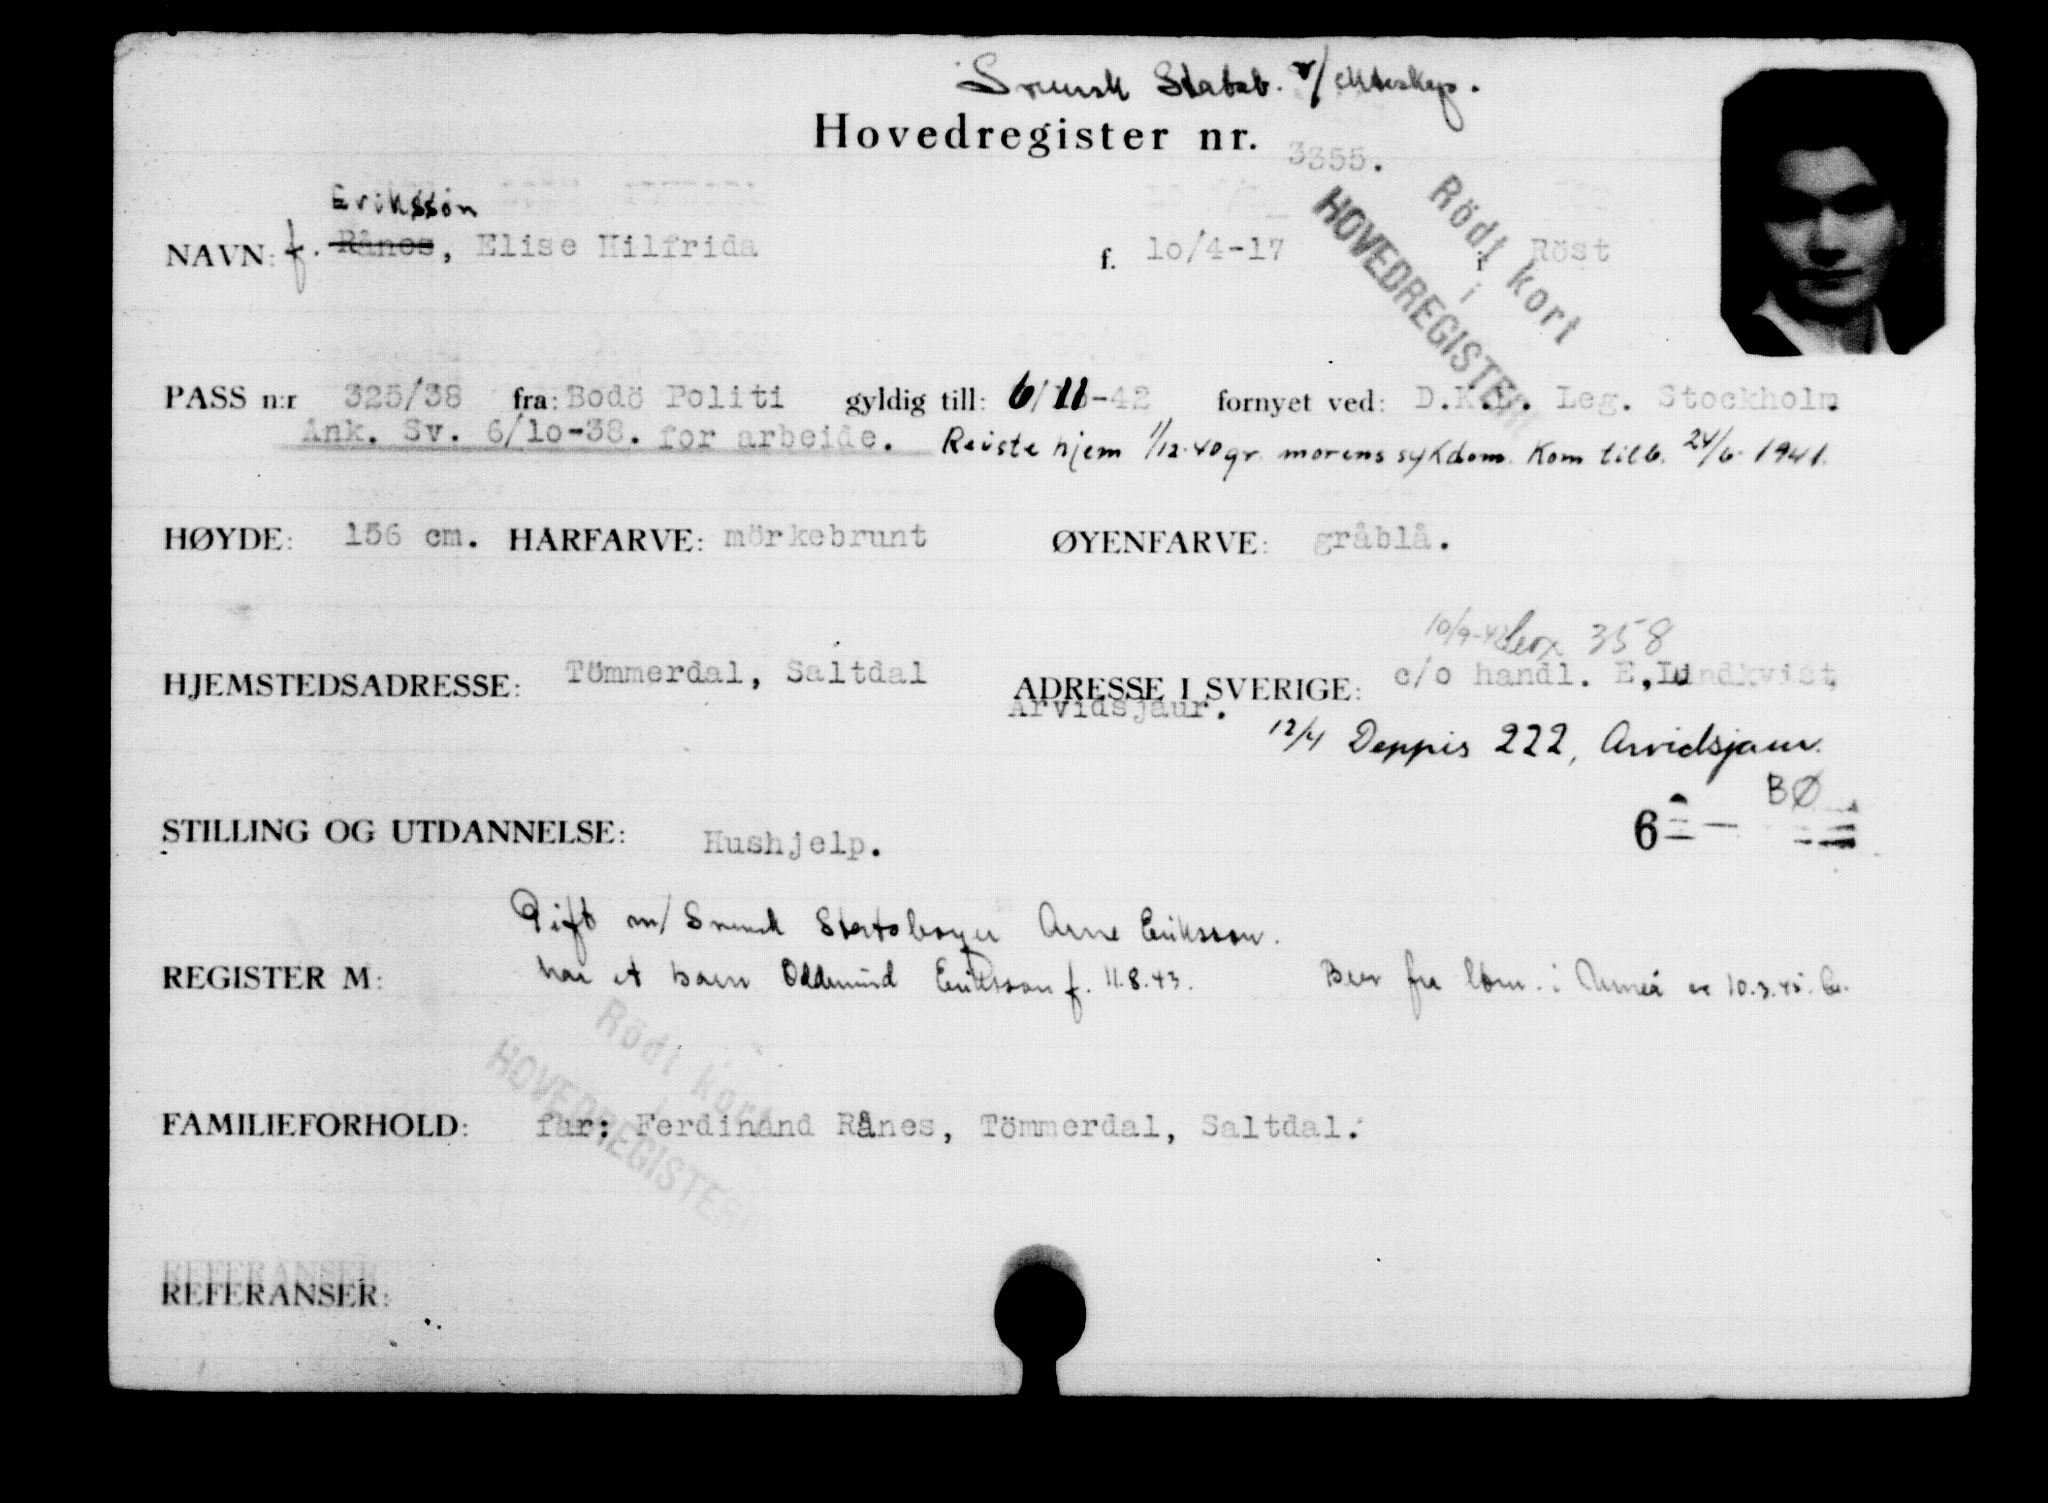 Svensk Statsb. v/ekteskap.
Hovedregister nr. 3355.
Rödt kort
i
HOVEDREGISTER
Eriksson
NAVN: f. Rånes, Elise Hilfrida f. 10/4-17 i Röst
PASS n:r 325/38 fra: Bodö Politi gyldig till: 6/11-42 fornyet ved: D.K.N. Leg. Stockholm
Ank. Sv. 6/10-38. for arbeide. Reiste hjem 1/12-40 gr. morens sykdom. Kom tilb. 24/6-1941.
HØYDE: 156 cm. HÅRFARVE: mörkebrunt ØYENFARVE: gråblå.
10/9-42 358
HJEMSTEDSADRESSE: Tömmerdal, Saltdal ADRESSE I SVERIGE: c/o handl. E. Lindkvist,
Arvidsjaur.
12/4 Deppis 222, Arvidsjaur.
BØ
6
STILLING OG UTDANNELSE: Hushjelp.
Gift m/ Svensk Statsborger Arne Eriksson.
REGISTER M: har et barn Oddmund Eriksson f. 11.8.43. fra i Umeå 10.3.45.
Rödt kort
i
HOVEDREGISTER
FAMILIEFORHOLD: far: Ferdinand Rånes, Tömmerdal, Saltdal.
REFERANSER
REFERANSER: